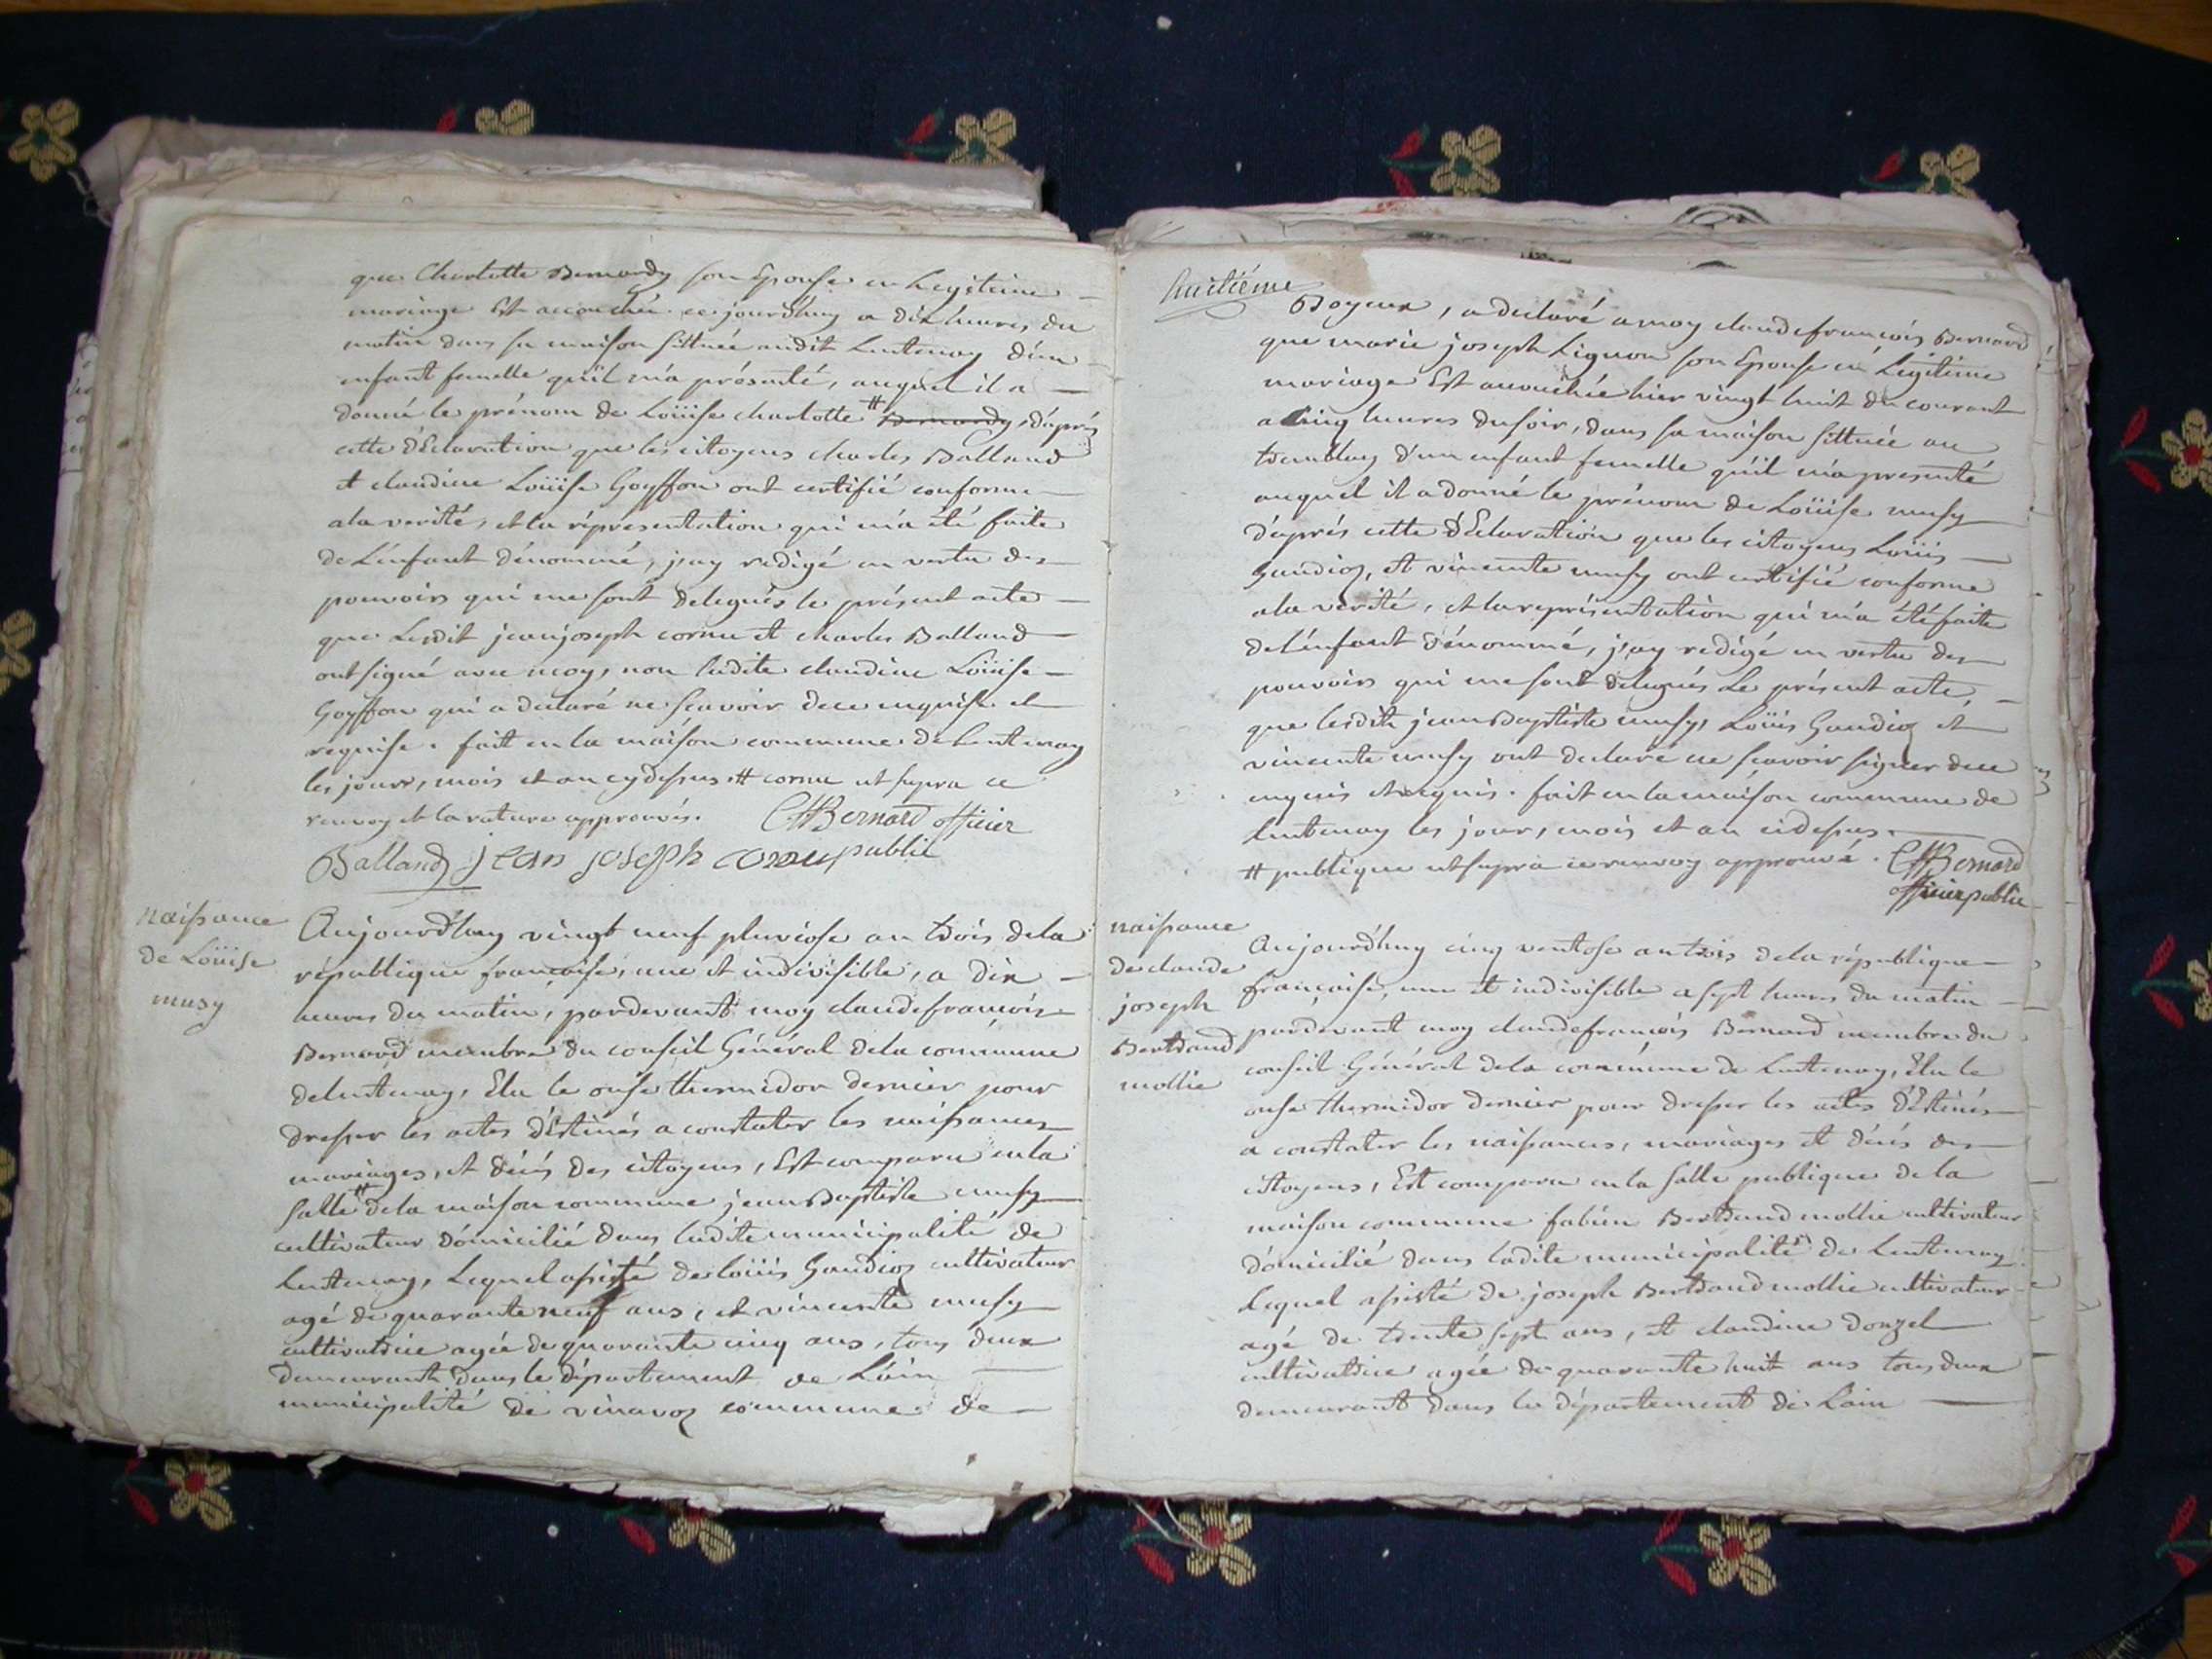 que Charlotte Bernardy son Epouse en Legitime
mariage Est accouchée cejourdhuy a dix heures du
matin dans sa maison sittuée audit Lentenay d'un
enfant femelle qu'il m'a présenté, auquel il a
donné le prénom de Loüise charlotte # Bernardy, d'après
cette déclaration que les citoyens charles Balland
et claudine Loüise Goyffon ont certifié conforme
a la verité, et la réprésentation qui m'a été faite
de L'enfant dénommé, j'ay redigé en vertu des
pouvoirs qui me sont delegués le présent acte
que Lesdit jean joseph cornu et charles Balland
ont signé avec moy, non ladite claudine Loüise
Goyffon qui a declaré ne scavoir de ce enquise et
requise. fait en la maison commune de Lentenay
les jour, mois et an cy dessus. # cornu ut supra ce
renvoy et la rature approuvés. CfBernard officier
Balland jean joseph cornu public
naissance
de Loüise
musy
Aujourd'huy vingt neuf pluviose an trois de la
république française, une et indivisible, a dix
heures du matin, pardevant moy claudefrançois
Bernard membre du conseil Général de la commune
de Lentenay, Elu le onse thermidor dernier pour
dresser les actes déstinés a constater les naissances
mariages, et décés des citoyens, Est comparu en la
salle # de la maison commune jean Baptiste musy
cultivateur domicilié dans ladite municipalité de
Lentenay, Lequel assisté de Loüis Gaudioz cultivateur
agé de quarante neuf ans, et vincente musy
cultivatrice agée de quarante cinq ans, tous deux
demeurants dans le département de L'ain
municipalité de viriavoz commune de
huitième
Boyeux, a declaré a moy claudefrancois Bernard
que marie joseph Liguon son Epouse en Légitime
mariage Est accouchée hier vingt huit du courant
a Cinq heures du soir, dans sa maison sittuée au
tremblay d'un enfant femelle qu'il m'a presenté
auquel il a donné le prénom de Loüise musy
d'après cette déclaration que les citoyens Loüis
Gaudioz, et vincente musy ont certifié conforme
a la verité, et la représentation qui m'a été faite
de l'enfant dénommé, j'ay redigé en vertu des
pouvoirs qui me sont delegués Le présent acte,
que lesdits jean Baptiste musy, Loüis Gaudioz et
vincente musy ont declaré ne scavoir signer de ce
enquis et requis. fait en la maison commune de
Lentenay les jour, mois et an cidessus.
# publique ut supra ce renvoy approuvé. CfBernard
officier public
naissance
de claude
joseph
Bertrand
mollie
Aujourdhuy cinq ventose an trois de la république
française, une et indivisible a sept heures du matin
pardevant moy claudefrancois Bernard membre du
conseil Général de la commune de Lentenay, élu le
onse thermidor dernier pour dresser les actes déstinés
a constater les naissances, mariages et décés des
citoyens, Est comparu en la salle publique de la
maison commune fabien Bertrand mollie cultivateur
domicilié dans ladite municipalité de Lentenay
Lequel assisté de joseph Bertrand mollie cultivateur
agé de trente sept ans, et claudine Donzel
cultivatrice agée de quarante huit ans tous deux
demeurant dans le département de L'ain